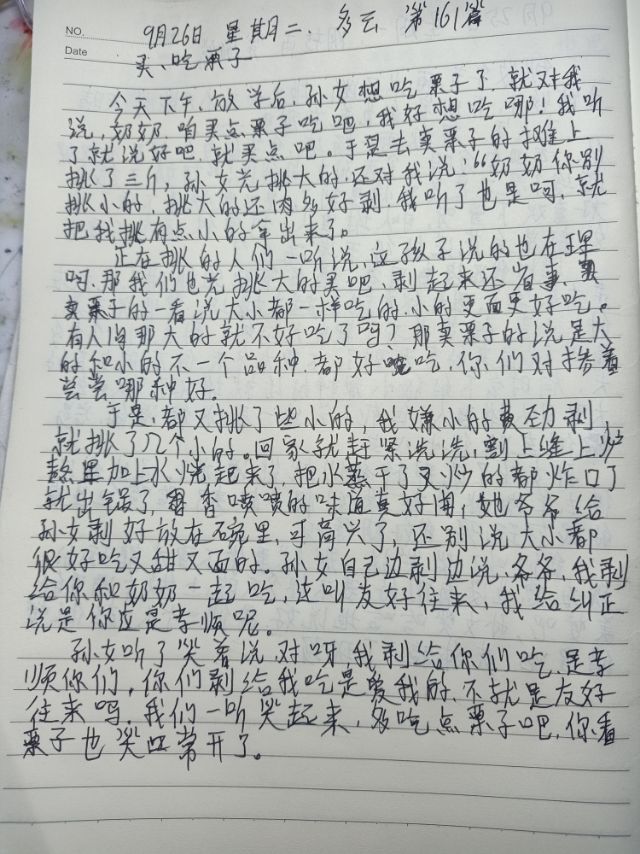 NO.
9月26日 星期二. 多云 第161篇
Date
买、吃栗子
今天下午,放学后,孙女想吃栗子了,就对我
说,奶奶,咱买点栗子吃吧,我好想吃哪!我听
了就说好吧,就买点吧。于是去卖栗子的摊上
挑了三斤,孙女光挑大的,还对我说:“奶奶你别
挑小的,挑大的还肉多好剥,我听了也是呵,就
把我挑有点小的拿出来了。
正在挑的人们一听说,这孩子说的也在理
呵,那我们也光挑大的买吧,剥起来还省事,
卖栗子的一看说大小都一样吃的,小的更面更好吃。
有人问那大的就不好吃了吗?那卖栗子的说是大
的和小的不一个品种,都好吃,你们对掺着
尝尝哪种好。
于是,都又挑了些小的,我嫌小的费劲剥,
就挑了几个小的。回家就赶紧洗洗,割上缝上炒
熬里加上水烧起来了,把水蒸干了又炒的都炸口了
就出锅了,香喷喷的味道真好闻,她爷爷给
孙女剥好放在碗里,可高兴了,还别说大小都
很好吃又甜又面的。孙女自己边剥边说,爷爷,我剥
给你和奶奶一起吃,这叫友好往来,我给纠正
说是你应是孝顺呢。
孙女听了笑着说,对呀,我剥给你们吃,是孝
顺你们,你们剥给我吃是爱我的,不就是友好
往来吗。我们一听笑起来,多吃点栗子吧,你看
栗子也笑口常开了。